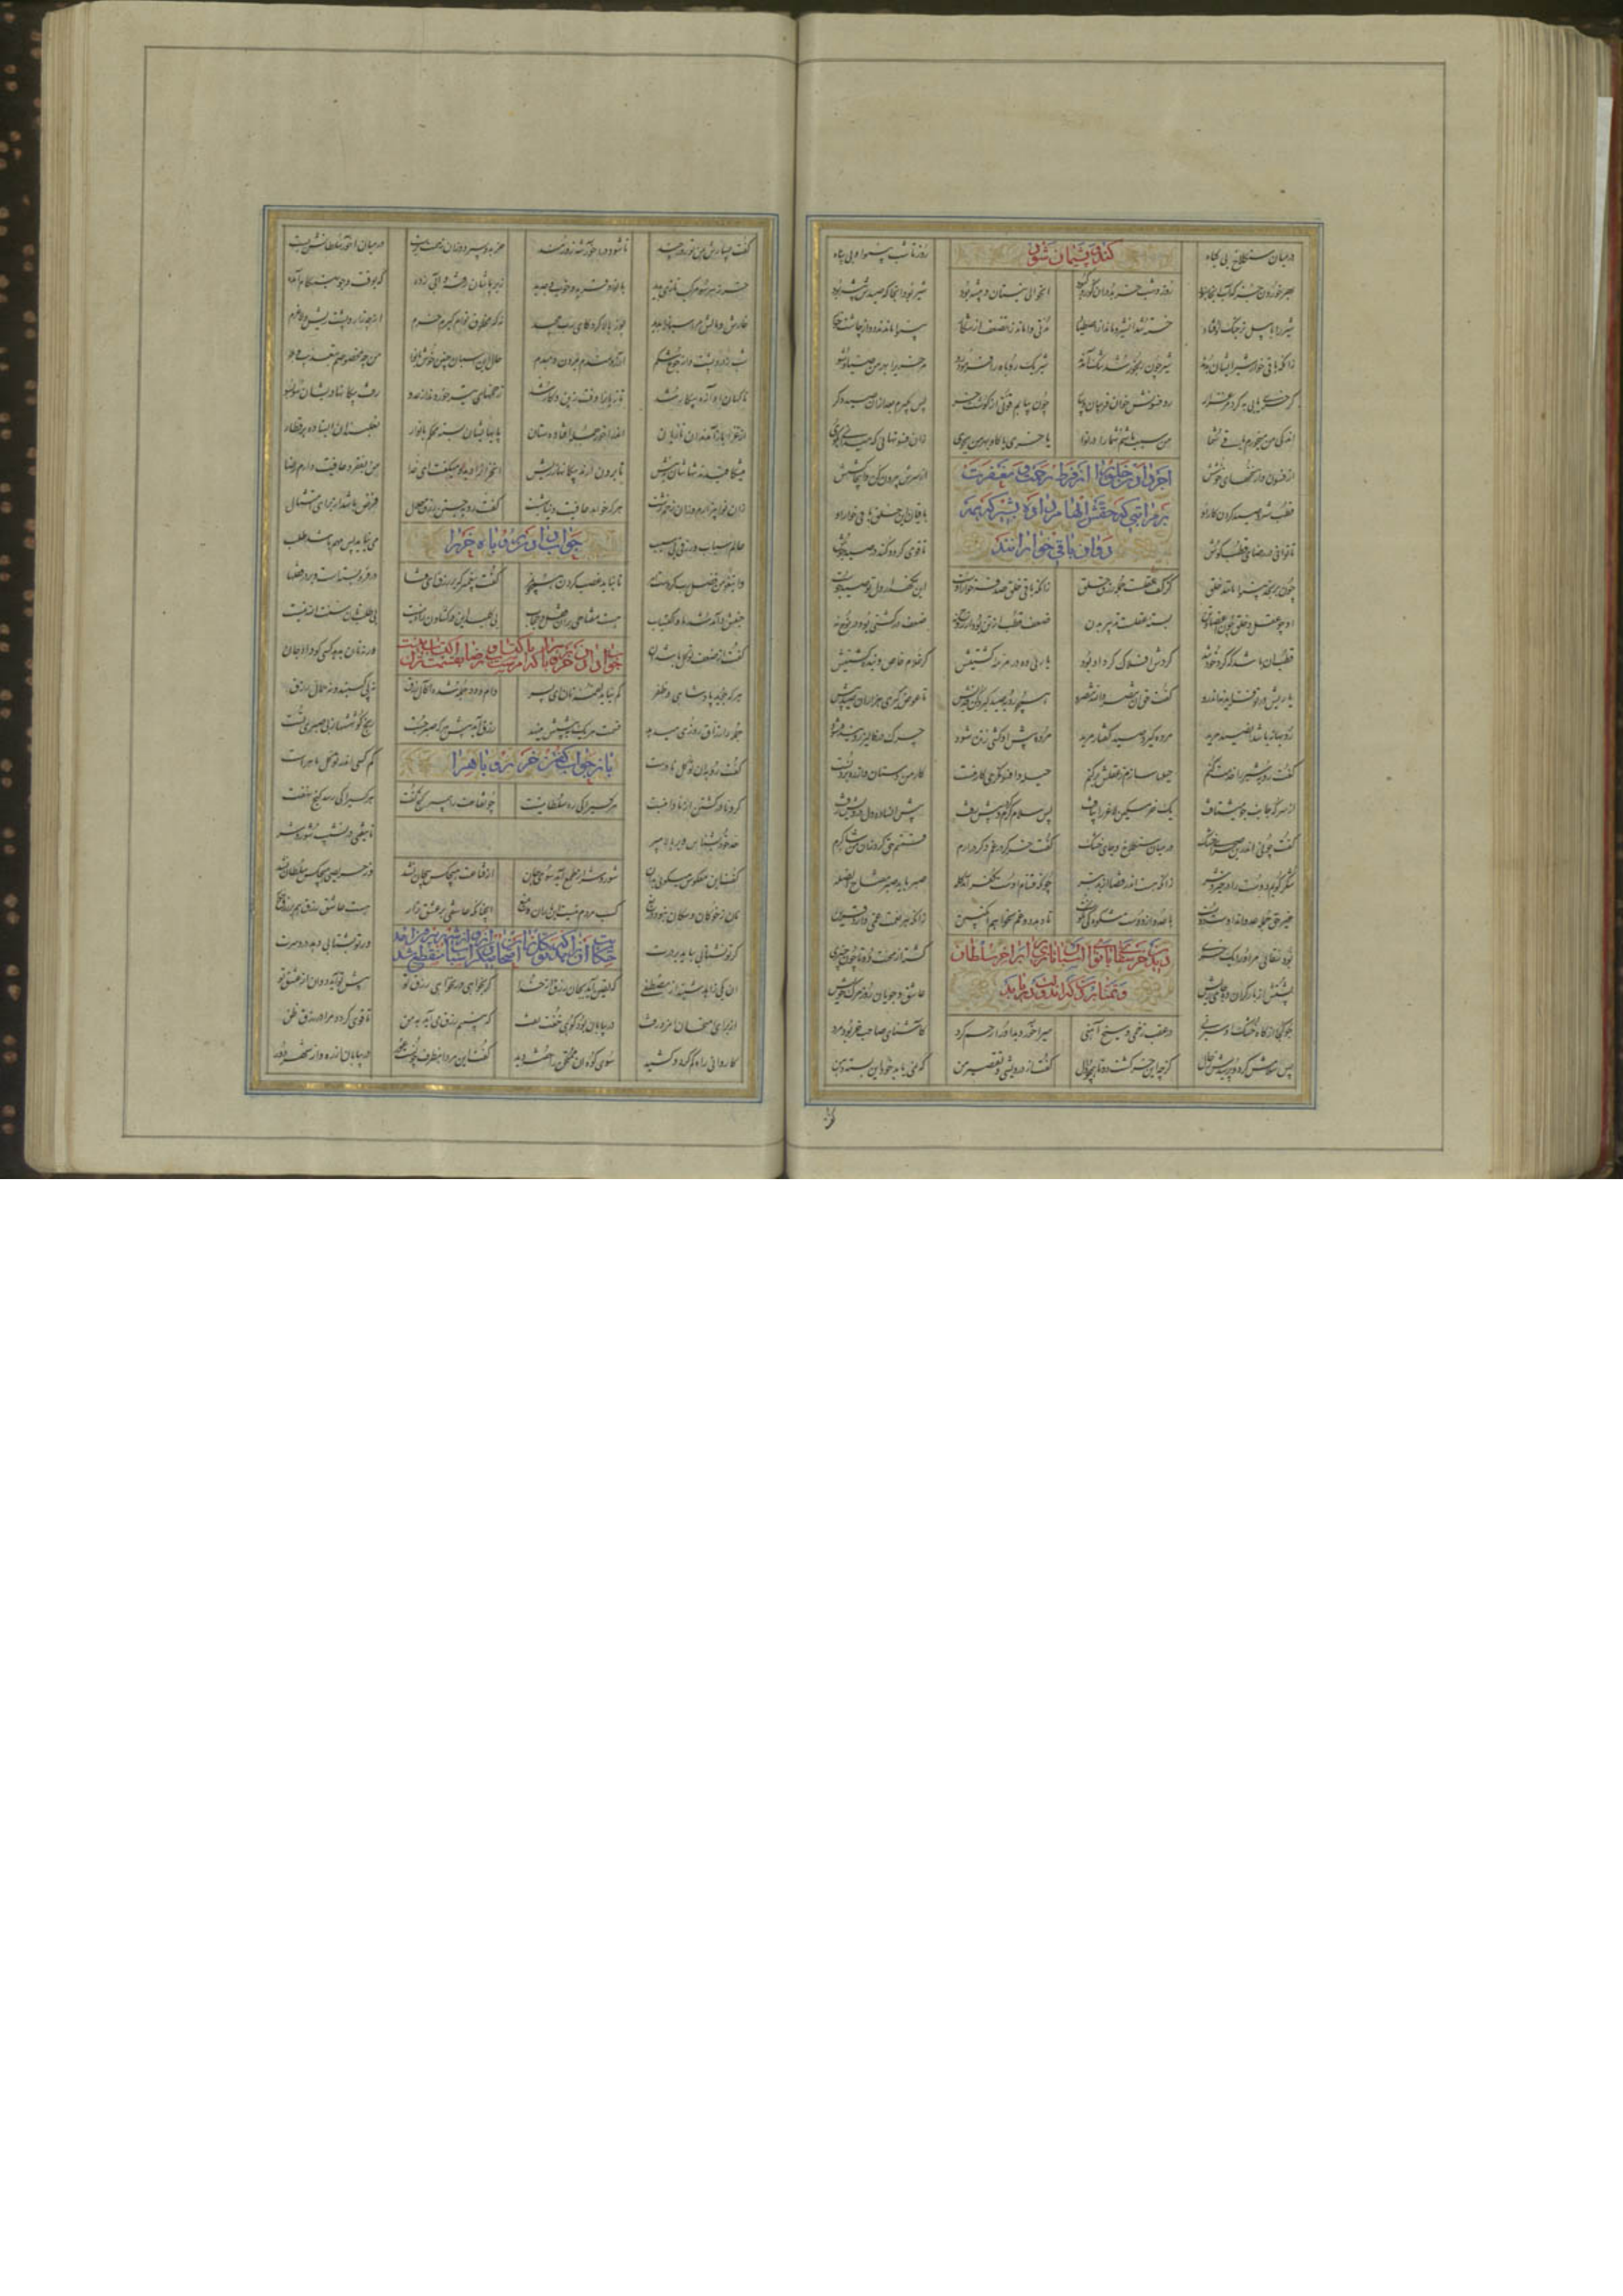 در میان سنگلاخ بی گیاه کند و پشیمان شود روز تا شب بینوا و بی پناه
بهر خوردن جز که آب آنجا نبود روز و شب خر بد در آن کور و کبود آن حوالی نیستان و بیشه بود شیر بود آنجا که صیدش پیشه بود
شیر را با پیل نر جنگ اوفتاد خسته شد آن شیر و ماند از اصطیاد مدتی واماند زان ضعف از شکار بینوا ماندند دد از چاشت خوار
زانکه باقی خوار شیر ایشان بدند شیر چون رنجور شد تنگ آمدند شیر یک روباه را فرمود رو مر خری را بهر من صیاد شو
گر خری یابی به گرد مرغزار رو فسونش خوان فریبانش بیار چون بیابم قوتی از گوشت خر پس بگیرم بعد از آن صیدی دگر
اندکی من میخورم باقی شما من سبب باشم شما را در نوا یا خری یا گاو بهر من بجوی زان فسونهایی که میدانی بگوی
از فسون و از سخنهای خوشش از سرش بیرون کن و اینجا کشش
قطب شیر و صید کردن کار او باقیان این خلق باقی خوار او
تا توانی در رضای قطب کوش روان باقی خوارانند تا قوی گردد کند در صید جوش
چون برنجد بینوا مانند خلق کز کف عقلست جمله رزق حلق زانکه باقی خلق صدقه خوار اوست این نگه دار ار دل تو صیدجوست
او چو عقل و خلق چون اعضای تن بسته عقلست تدبیر بدن ضعف قطب از تن بود از روح نه ضعف در کشتی بود در نوح نه
قطب آن باشد که گرد خود تند گردش افلاک گرد او بود یاریی ده در مرمه کشتیش گر غلام خاص و بنده گشتیش
یاریش در تو فزاید نه اندرو گفت حق ان تنصروا الله تنصروا همچو روبه صید گیر و کن فدیش تا عوض گیری هزاران صید بیش
روبهانه باشد آن صید مرید مرده گیرد صید کفتار مرید مرده پیش او کشی زنده شود چرک در پالیز روینده شود
گفت روبه شیر را خدمت کنم حیلها سازم ز عقلش بر کنم حیله و افسونگری کار منست کار من دستان و از ره بردنست
از سر که جانب جو میشتافت یک خر مسکین لاغر را بیافت پس سلام گرم کرد و پیش رفت پیش آن ساده دل درویش رفت
گفت چونی اندرین صحرای خشک در میان سنگلاخ و جای خشک گفت خر گر در غمم گر در ارم قسمتم حق کرد من زان شاکرم
شکر گویم دوست را در خیر و شر زانکه هست اندر قضا از بد بتر چونکه قسام اوست کفر آمد گله صبر باید صبر مفتاح الصله
غیر حق جمله عدواند اوست دوست با عدو از دوست شکوه کی نکوست تا دهد دوغم نخواهم انگبین زانکه هر نعمت غمی دارد قرین
بود سقایی مر او را یک خری گشته از محنت دو تا چون چنبری
پشتش از بار گران ده جای ریش عاشق و جویان روز مرگ خویش
جو کجا از کاه خشک او سیر نی در عقب زخمی و سیخ آهنی میر آخور دید او را رحم کرد کاشنای صاحب خر بود مرد
پس سلامش کرد و پرسیدش ز حال کز چه این خر گشت دو تا همچو دال گفت از درویشی و تقصیر من که نمی یابد خود این بسته دهن
گفت بسپارش بمن تو روز چند تا شود در آخور شه زورمند خر بدو بسپرد و آن زحمت پرست در میان آخور سلطانش بست
خر ز هر سو مرکب تازی بدید با نوا و فربه و خوب و جدید زیر پاشان رفته و آبی زده که بوقت و جو بهنگام آمده
خارش و مالش مر اسبان را بدید پوز بالا کرد کای رب مجید نه که مخلوق توام گیرم خرم از چه زار و پشت ریش و لاغرم
شب ز درد پشت و از جوع شکم آرزومندم بمردن دمبدم حال این اسبان چنین خوش با نوا من چه مخصوصم بتعذیب و بلا
ناگهان آوازه پیکار شد تازیان را وقت زین و کار شد زخمهای تیر خوردند از عدو رفت پیکانها در ایشان سو بسو
از غزا باز آمدند آن تازیان اندر آخور جمله افتاده ستان پایهاشان بسته محکم با نوار نعلبندان ایستاده بر قطار
میشکافیدند تنهاشان بنیش تا برون آرند پیکانها ز ریش آن خر آن را دید و میگفت ای خدا من بفقر و عافیت دادم رضا
زان نوا بیزارم و زان زخم زشت هر که خواهد عافیت دنیا بهشت گفت روبه جستن رزق حلال فرض باشد از برای امتثال
عالم اسباب و رزق بی سبب جواب دادن روباه خر را می نیاید پس مهم باشد طلب
تا نباید غصب کردن همچو نمر گفت پیغمبر که بر رزق ای فتا در فرو بسته است و بر در قفلها
جنبش و آمد شد ما و اکتساب هست مفتاحی بر آن قفل و حجاب بی کلید این در گشادن راه نیست بی طلب نان سنت الله نیست
گفت از ضعف توکل باشد آن ور نه نان بدهد کسی کو داد جان
هر که جوید پادشاهی و ظفر کم نیاید لقمه نان ای پسر دام و دد جمله شده اکال رزق نه پی کسبند و نه حمال رزق
جمله را رزاق روزی میدهد قسمت هر یک به پیشش مینهد رزق آید پیش هر که صبر جست رنج کوششها ز بی صبری تست
گفت روبه آن توکل نادرست باز جواب گفتن خر روباه را کم کسی اندر توکل ماهرست
گرد نادر گشتن از نادانیست هر کسی را کی ره سلطانیست چون قناعت را پیمبر گنج گفت هر کسی را کی رسد گنج نهفت
حد خود بشناس و بر بالا مپر تا نیفتی در نشیب شور و شر
گفت این معکوس میگویی بدان شور و شر از طمع آید سوی جان از قناعت هیچکس بیجان نشد وز حریصی هیچکس سلطان نشد
نان ز خوکان و سگان نبود دریغ کسب مردم نیست این باران و میغ آنچنانکه عاشقی بر رزق زار هست عاشق رزق هم بر رزق خوار
گر تو نشتابی بیاید بر درت ور تو بشتابی دهد درد سرت
آن یکی زاهد شنید از مصطفی که یقین آید بجان رزق از خدا گر بخواهی ور نخواهی رزق تو پیش تو آید دوان از عشق تو
از برای امتحان آن مرد رفت در بیابان نزد کوهی خفت تفت که ببینم رزق می آید به من تا قوی گردد مرا در رزق ظن
کاروانی راه گم کرد و کشید سوی کوه آن ممتحن را خفته دید گفت این مرد این طرف چونست عور در بیابان از ره و از شهر دور